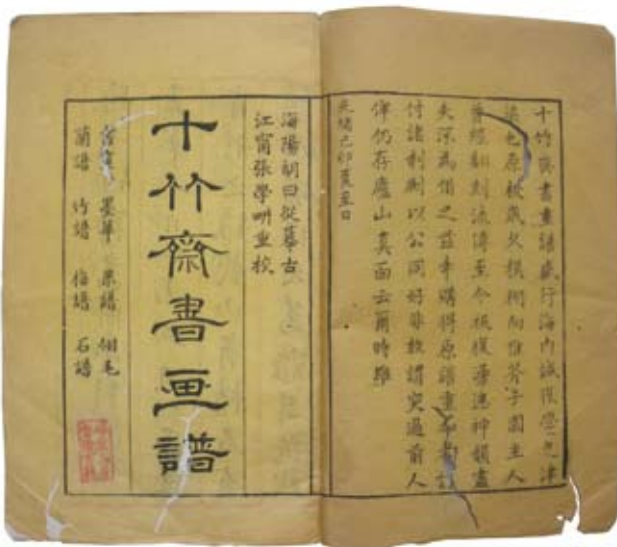 十竹齋書畫譜盛行海內誠後學之津
梁也原板歲久模糊向惟芥子園主人
曾經翻刻流傳至今板復漫神韻盡
失深為惜之茲幸購得原譜重
付諸剞劂以公同好非敢謂突過前人
俾仍存廬山真面云爾時維
光緒己卯夏至日
海陽胡曰從摹古
江甯張學畊重校
十竹齋書画譜
墨華 果譜 翎毛
蘭譜 竹譜 梅譜 石譜